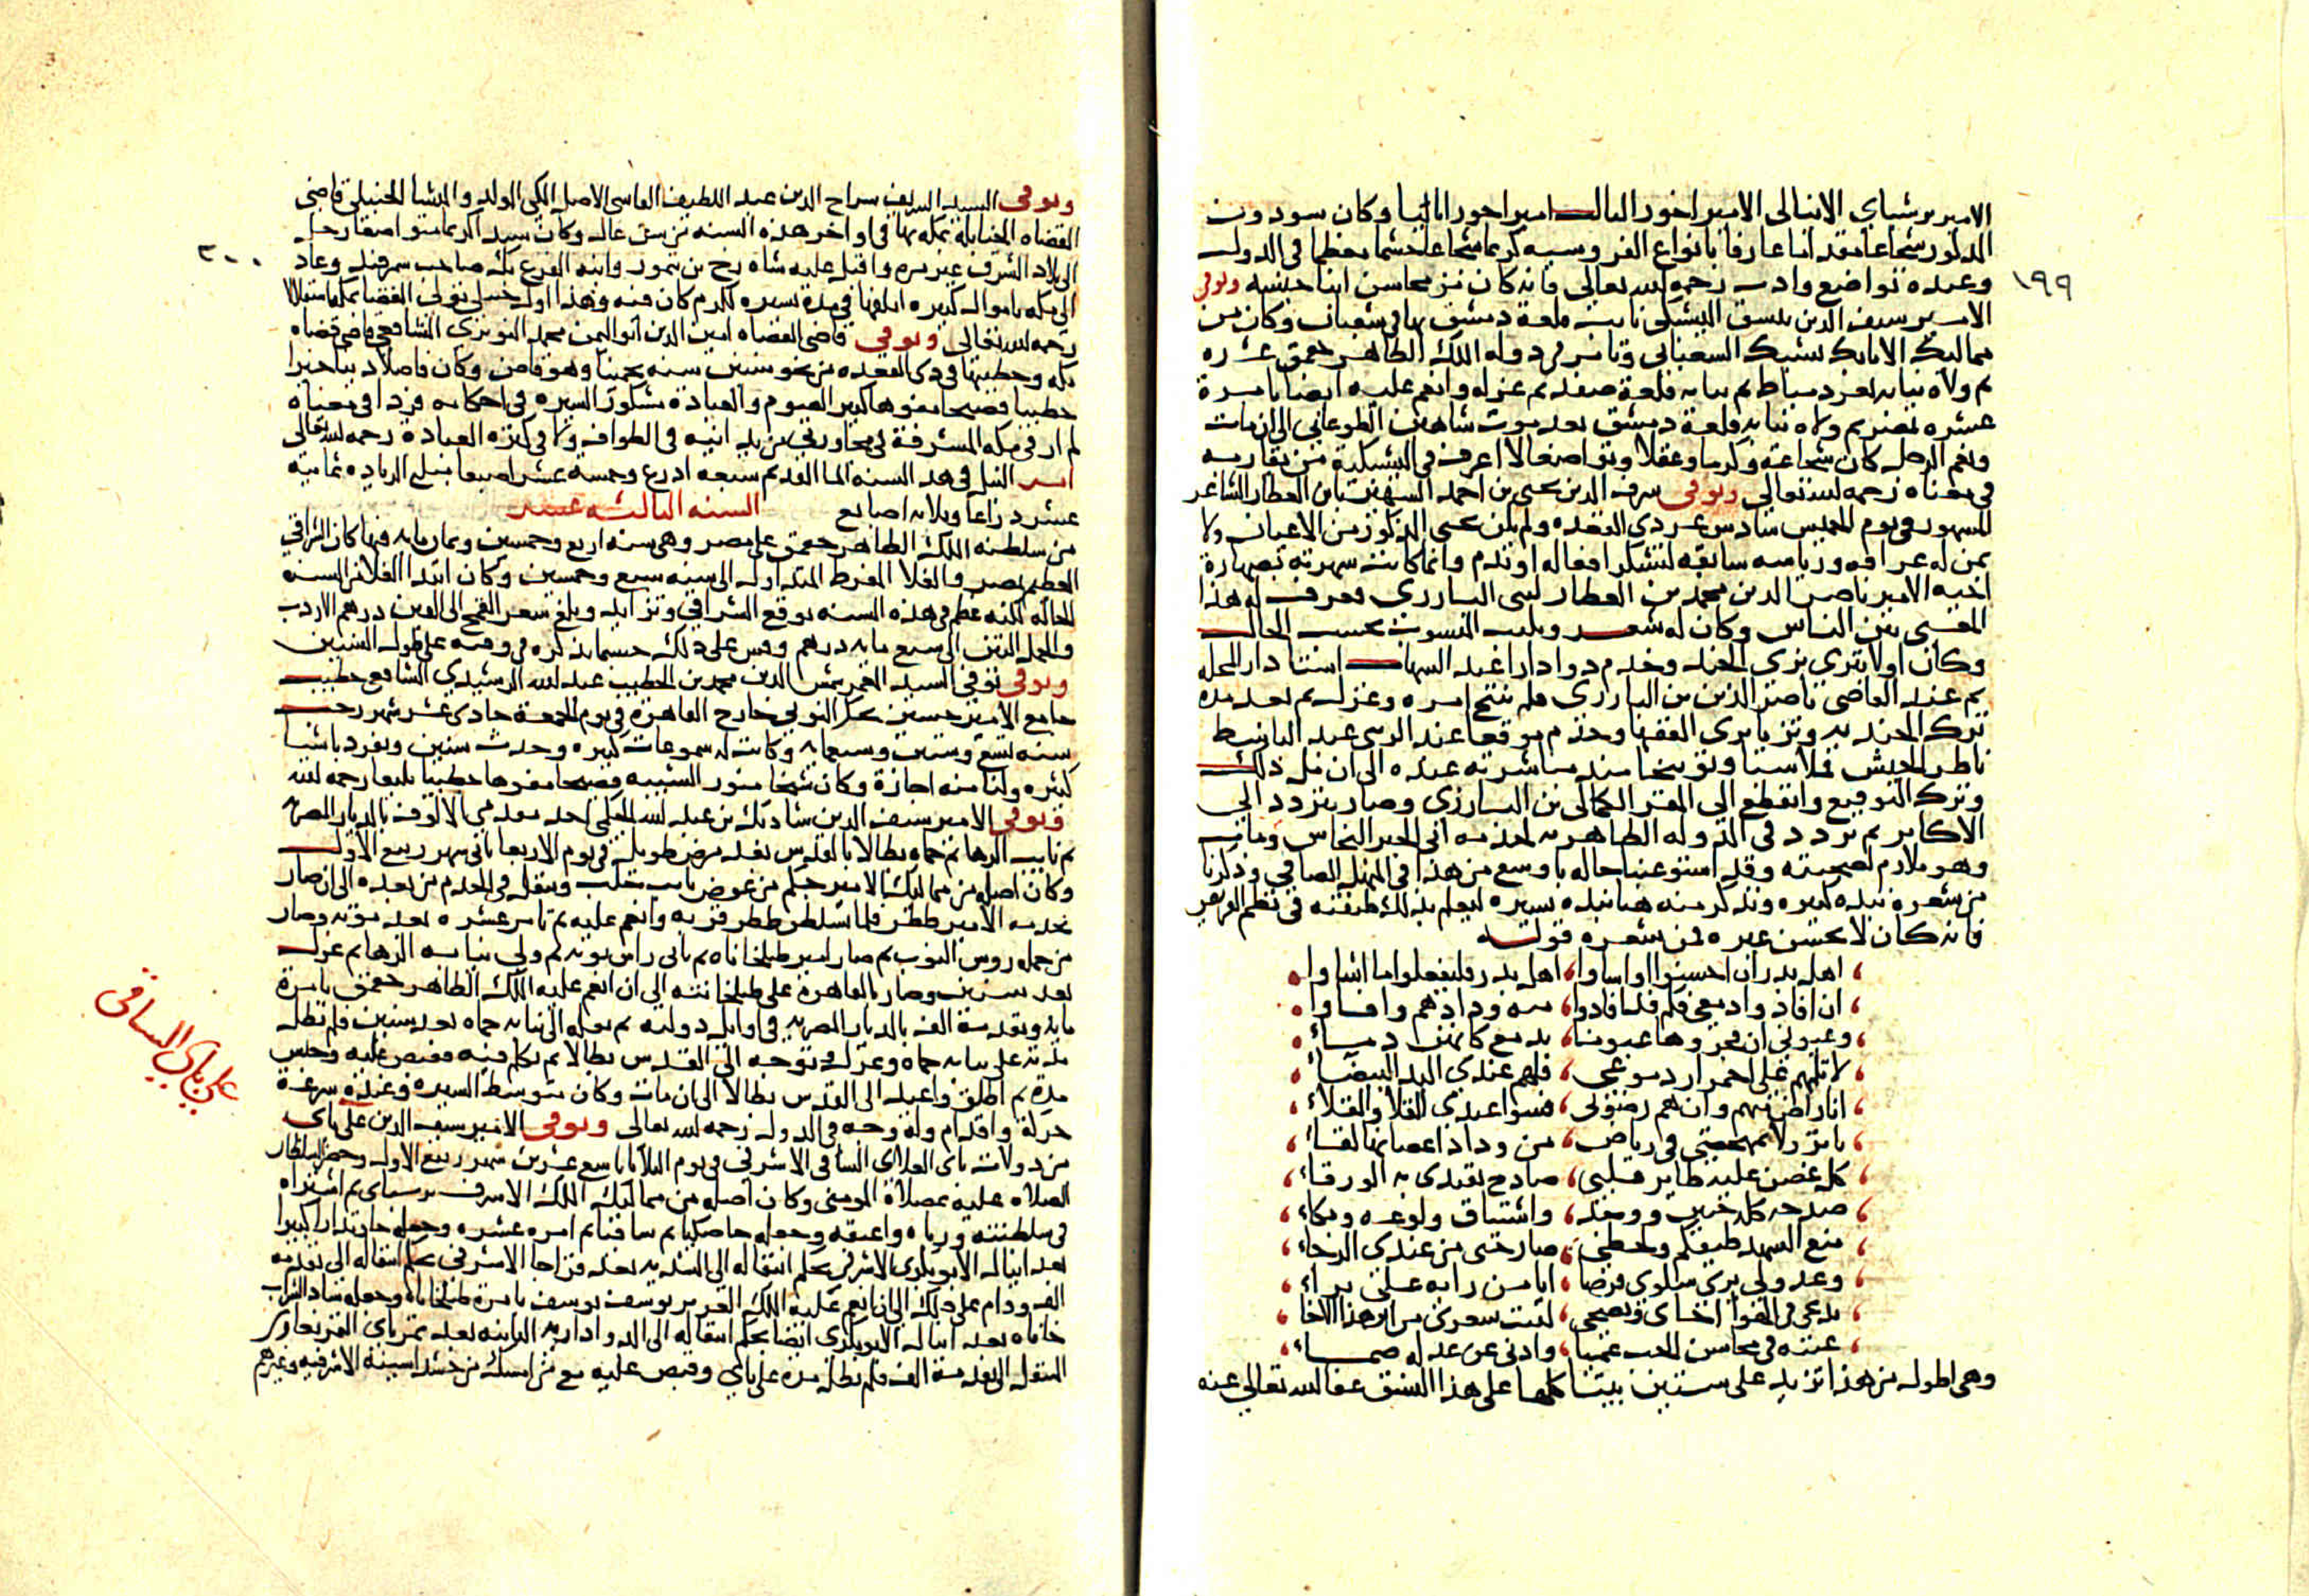 ١٩٩
الامير برشباي الاينالى الامير اخور الثالث امير اخور اثانيا وكان سودون
المذكور شجاعا مقداما عارفا بانواع الفروسيه كريما شجاعا حشما معظما فى الدوله
وعنده تواضع وادب رحمه الله تعالى فانه كان من محاسن ابنا جنسه وتوفى
الامير سيف الدين بيسق اليشبكى نايب قلعة دمشق بها فى شعبان وكان من
مماليك الاتابك يشبك الشعبانى وتامر فى دوله الملك الظاهر جقمق عشره
ثم ولاه نيابه ثغر دمياط ثم نيابه قلعة صفد ثم عزله وانعم عليه ايضا بامرة
عشره بمصر ثم ولاه نيابه قلعة دمشق بعد موت شاهين الطوغانى الى ان مات
ونعم الرجل كان شجاعة وكرما وعقلا وتواضعا لا اعرف فى اليشبكية من يقاربه
فى معناه رحمه الله تعالى وتوفى شرف الدين يحيى بن احمد الشهير بابن العطار الشاعر
المشهور فى يوم الخميس سادس عشر ذى القعده ولم يكن يحيى المذكور من الاعيان ولا
ممن له عراقه ورياسه سابقه لتشكر افعاله او تذم وانما كانت شهرته بصهارة
اخيه الامير ناصر الدين محمد بن العطار لبنى البارزى فعرف لهذا
المقتضى بين الناس وكان له شعر ويكتب المنسوب بحسب الحال
وكان اولا يتزى بزى الجند وخدم دوادارا عند الشهاب استادار المحله
ثم عند القاضى ناصر الدين بن البارزى فلم ينتج امره وعزل ثم بعد مده
ترك الجنديه وتزيا بزى الفقها وخدم موقعا عند الزينى عبد الباسط
ناظر الجيش فلا سنا وتوبيخا منه مباشرته عنده الى ان مل ذلك
وترك التوقيع وانقطع الى المقر الكمالى بن البارزى وصار يتردد الى
الاكابر ثم تردد فى الدوله الظاهريه لخدمه ابى الخير النحاس ومات
وهو ملازم لصحبته وقد استوعبنا حاله باوسع من هذا فى المنهل الصافى وذكرنا
من شعره نبذه كبيره ونذكر منه هنا نبذه يسيره ليعلم بذلك طبقته فى نظم القريض
فانه كان لا يحسن غيره فمن شعره قوله
، اهل بدر ان احسنوا او اساوا ، اهل بدر فليفعلوا ما اشاوا
، ان افاد وا دمعى فكم قد افادوا ، منه ودادهم وافاوا
، وعيونى ان فجروها عيونا ، بدمع كانهن دماء
، لا تلمهم على احمرار دموعى ، فلهم عندى اليد البيضاء
، انا راض منهم وان هم رضونى ، فسوا عندى القلا والقلاء
، يا نزولا بمهجتى فى رياض ، من وداد اغصانها لفاء
، كل غصن عليه طاير قلبى ، صادح تقتدى به الورقاء
، صدحه كله حنين ووجد ، واشتياق ولوعه وبكاء
، منع السهد طيفكم ولحظى ، صار حتى من عندى الرخاء
، وعدولى يرى سلوى فرضا ، انا من رايه على براء
، يدعى فى الهوا اخاى ونصحى ، ليت شعرى من اين هذا الاخا
، عينه فى محاسن الحب عميا ، واذنى عن عذله صماء
وهى اطول من هذا تزيد على ستين بيتا كلها على هذا النسق عفا الله تعالى عنه
٢٠٠
وتوفى السيد الشريف سراج الدين عبد اللطيف الفاسى الاصل المكى المولد والمنشا الحنبلى قاضى
القضاه الحنابلة بمكه بها فى اواخر هذه السنه من سن عال وكان سيدا كريما متواضعا رحل
الى بلاد الشرق غير مره واقبل عليه شاه رخ بن تيمور وابنه الوغ بك صاحب سمرقند وعاد
الى مكه باموال كبيره اتلفها فى مدة يسيره لكرم كان فيه وهذا اول حنبلى تولى القضا بمكه استقلالا
رحمه الله تعالى وتوفى قاضى القضاه امين الدين ابو اليمن محمد النويرى الشافعى قاضى قضاه
مكه وخطيبها فى ذى القعده عن نحو ستين سنه تخمينا وهو قاض وكان فاضلا دينا خيرا
خطيبا فصيحا مفوها كثير الصوم والعبادة مشكور السيره فى احكامه فردا فى معناه
لم ار فى مكه المشرفة فى مجاورتى من يدانيه فى الطواف ولا فى كثره العباده رحمه الله تعالى
امر النيل فى هذه السنه الما القديم سبعه اذرع وخمسه عشر اصبعا مبلغ الزياده ثمانيه
عشر ذراعا وثلاثه اصابع السنه الثالثه عشر
من سلطنه الملك الظاهر جقمق على مصر وهى سنه اربع وخمسين وثمان مايه فيها كان الشراقى
العظيم بمصر والغلا المفرط المتداول الى سنه سبع وخمسين وكان ابتدا الغلا من السنه
الخاليه لكنه عظم فى هذه السنه بوقع الشراقى وتزايد وبلغ سعر القمح الى الفين درهم الاردب
والحمل التبن الى سبع مايه درهم وقس على ذلك حسبما نذكره فى وقته على طول السنين
وتوفى توفى السيد المعمر شمس الدين محمد بن الخطيب عبد الله الرشيدى الشافعى خطيب
جامع الامير حسين بحكر النوبى خارج القاهرة فى يوم الجمعة حادى عشر شهر رجب
سنه تسع وستين وسبعمايه وكانت له سموعات كثيره وحدث سنين وتفرد باشيا
كثيره ولنا منه اجازة وكان شيخا منور الشيبه فصيحا مفوها خطيبا بليغا رحمه الله
وتوفى الامير سيف الدين شادبك بن عبد الله الجكمى احد مقدمى الالوف بالديار المصريه
ثم نايب الرها ثم حماه بطالا بالقدس بعد مرض طويل فى يوم الاربعا ثانى شهر ربيع الاول
وكان اصله من مماليك الامير جكم من عوض نايب حلب وتنقل فى الخدم من بعده الى ان صار
بخدمه الامير ططر فلما تسلطن ططر قربه وانعم عليه ثم تامر عشره بعد موته وصار
من جمله روس النوب ثم صار امير طبلخاناه ثم ثانى راس نوبه ثم ولى نيابه الرها ثم عزل
بعد سنين وصار بالقاهره على طبلخانته الى ان انعم عليه الملك الظاهر جقمق بامرة
مايه وتقدمة الف بالديار المصريه فى اوايل دولته ثم نقله الى نيابه حماه بعد سنين فلم تطل
مدته على نيابه حماه وعزل وتوجه الى القدس بطالا ثم تكلم فيه فقبض عليه وحبس
مدة ثم اطلق واعيد الى القدس بطالا الى ان مات وكان متوسط السيره وعنده سرعة
حركة واقدام وله وجه فى الدوله رحمه الله تعالى وتوفى الامير سيف الدين على باى
من دولات باى العلاى الساقى الاشرفى فى يوم الثلاثا باسع عشرين شهر ربيع الاول وحضر السلطان
الصلاه عليه بمصلاة المومنى وكان اصله من مماليك الملك الاشرف برسباى ثم اشتراه
فى سلطنته ورباه واعتقه وجعله خاصكيا ثم ساقيا ثم امره عشره وجعله خازندارا كبيرا
بعد اينال الابوبكرى الاشرفى بحكم انتقاله الى الشديه بعد قراجا الاشرفى بحكم انتقاله الى تقدمه
الف ودام على ذلك الى ان انعم عليه الملك العزيز يوسف بامرة طبلخاناه وجعله شاد الشراب
خاناه بعد اينال الابوبكرى ايضا بحكم انتقاله الى الدواداريه الثانيه بعد تمرباى التمربغاوى
المنتقل الى تقدمة الف فلم تطل مده على باى وقبض عليه مع من امسك من خشداشيته الاشرفيه وغيرهم
على باى الساقى